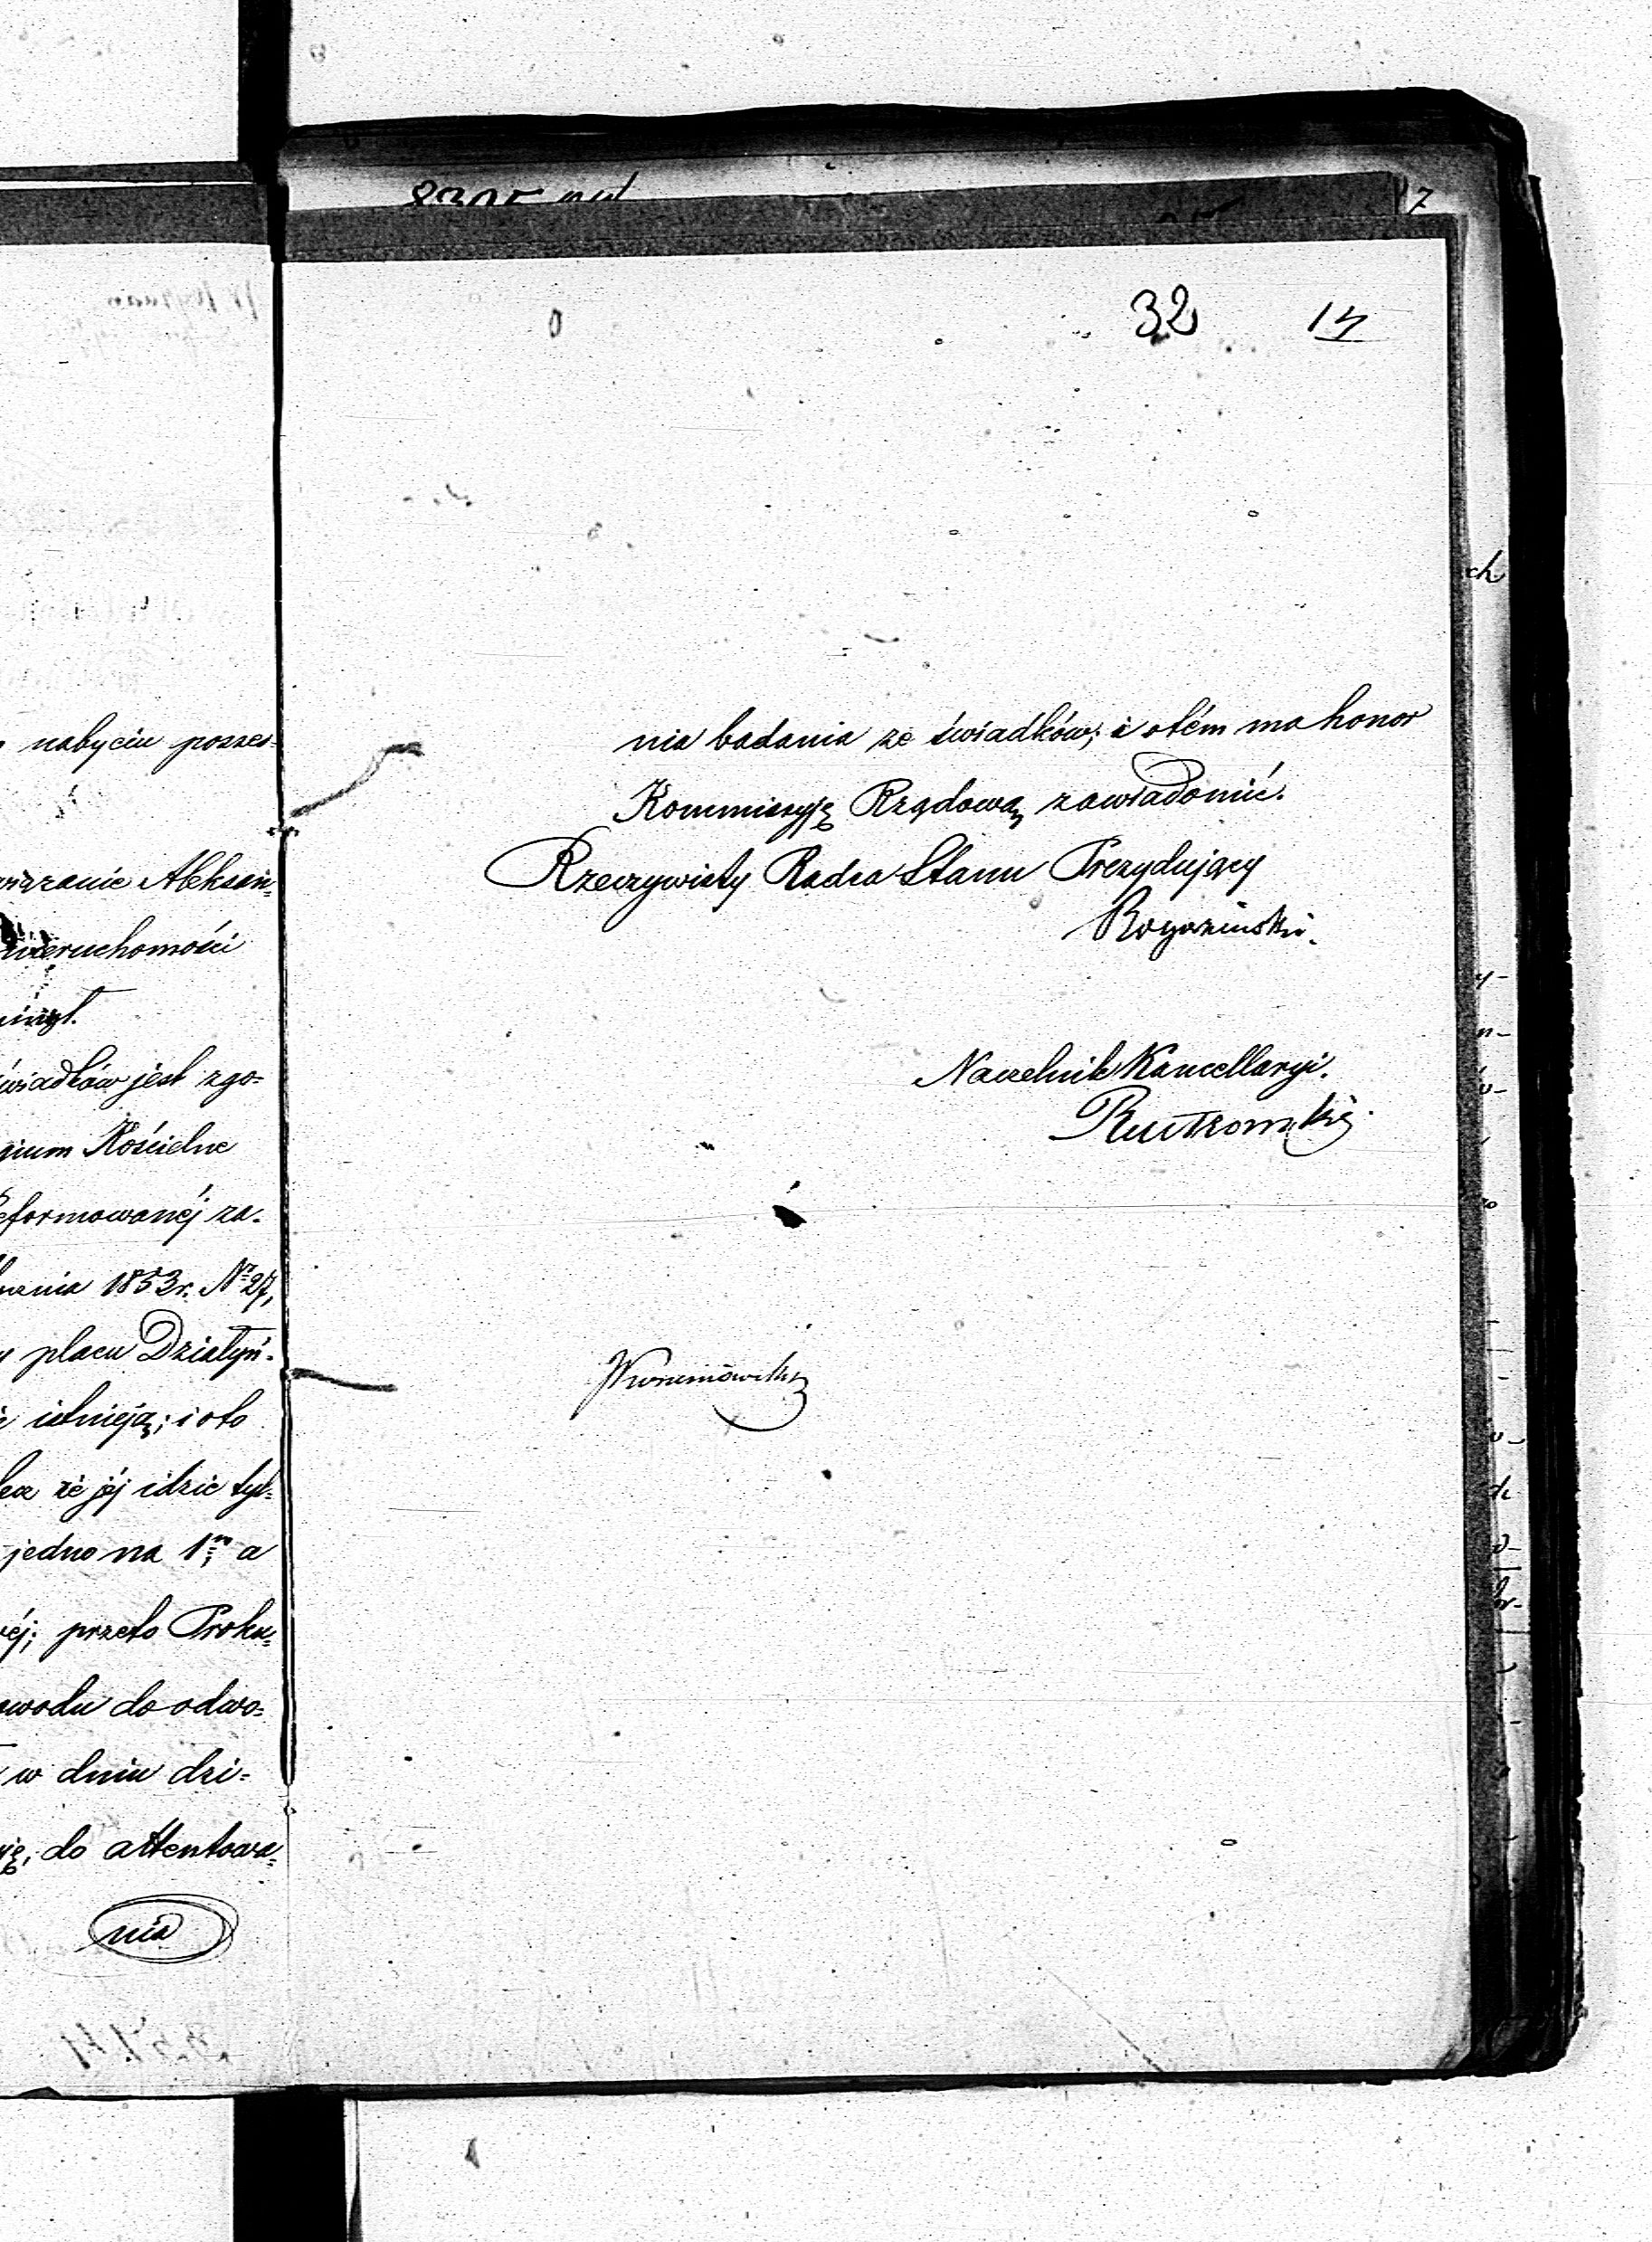 nabyciu posses-
wiązanie Aleksan-
nieruchomości
świadków jest zgo-
gium Kościelne
reformowanéj za-
1853r. Nr 27,
placu Działyń-
istnieją; i oto
że jéj idzie tyl-
jedno na 1m a
przeto Proku-
powodu do odwo-
w dniu dzi-
do attentowa-
nia
32 17
nia badania ze świadków; i otém ma honor
Kommissyję Rządową zawiadomić.
Rzeczywisty Radca Stanu Prezydujący
Rogoziński.
Naczelnik Kancellaryi.
Rutkowski.